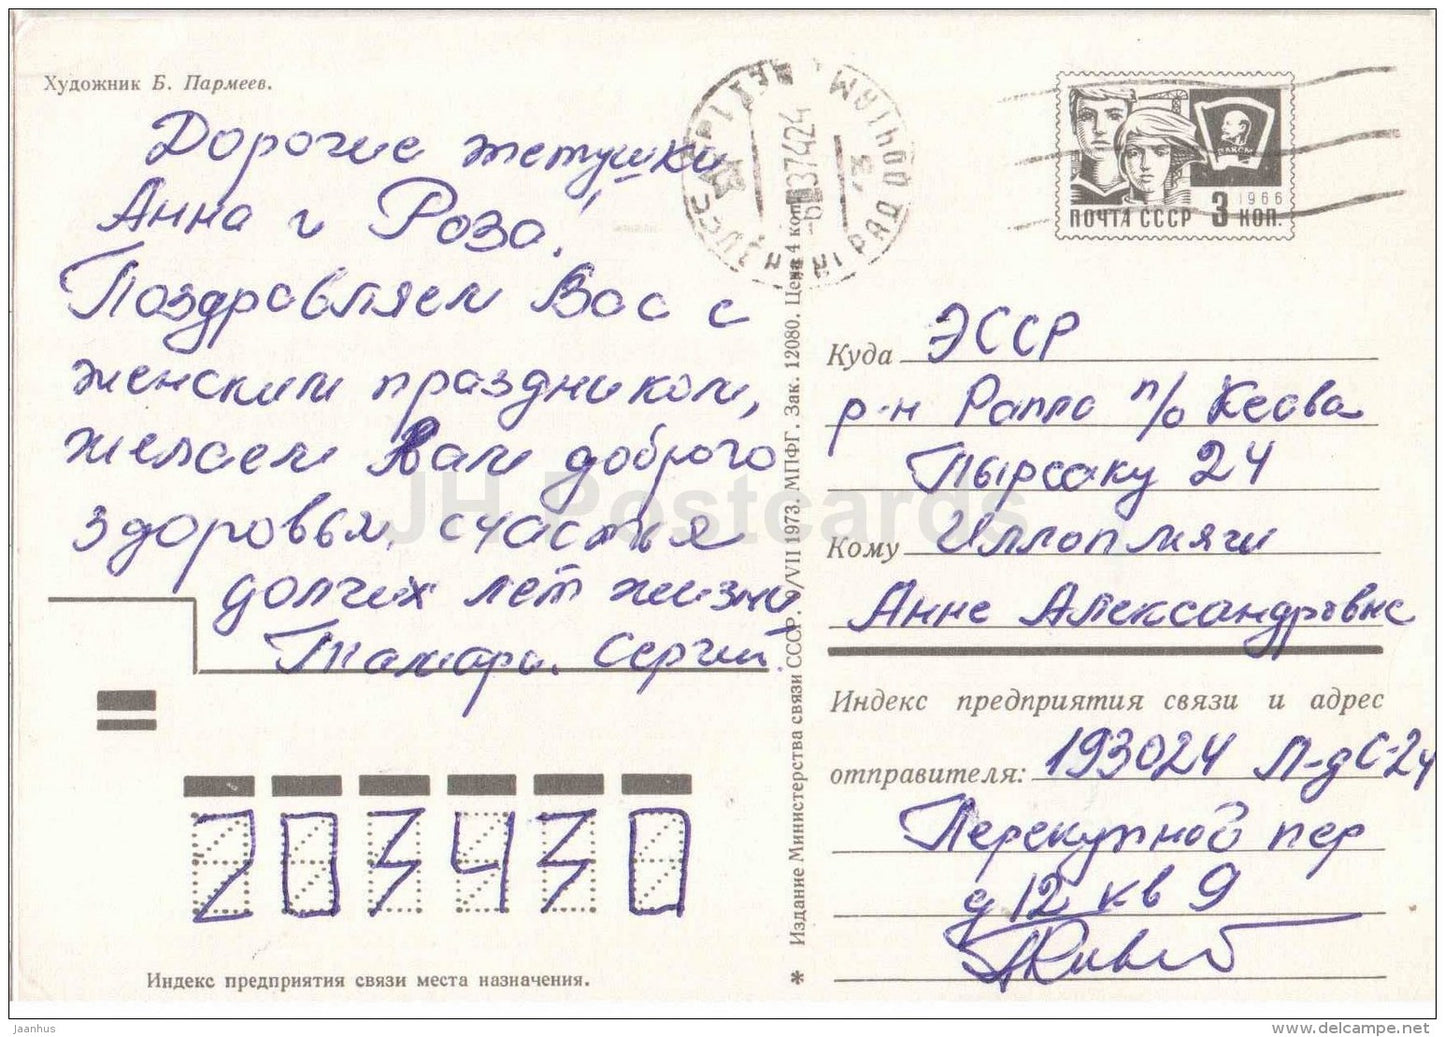 Художник Б. Пармеев.
Дорогие тетушки
Анна и Роза!
Поздравляем Вас с
женским праздником,
желаем Вам доброго
здоровья, счастья
долгих лет жизни
Тамара. Сергей.
203430
Индекс предприятия связи места назначения.
* Издание Министерства связи СССР. 9/VII 1973. МПФГ. Зак. 12080. Цена 4 коп.
ПОЧТА СССР 3 КОП.
1966
ВЛКСМ
Куда ЭССР
р-н Рапла п/о Кеава
Пырсаку 24
Кому Иллопмяги
Анне Александровне
Индекс предприятия связи и адрес
отправителя: 193024 Л-д С-24
Перекупной пер
д 12 кв 9
JH Postcards
jaanhus
www.delcampe.net